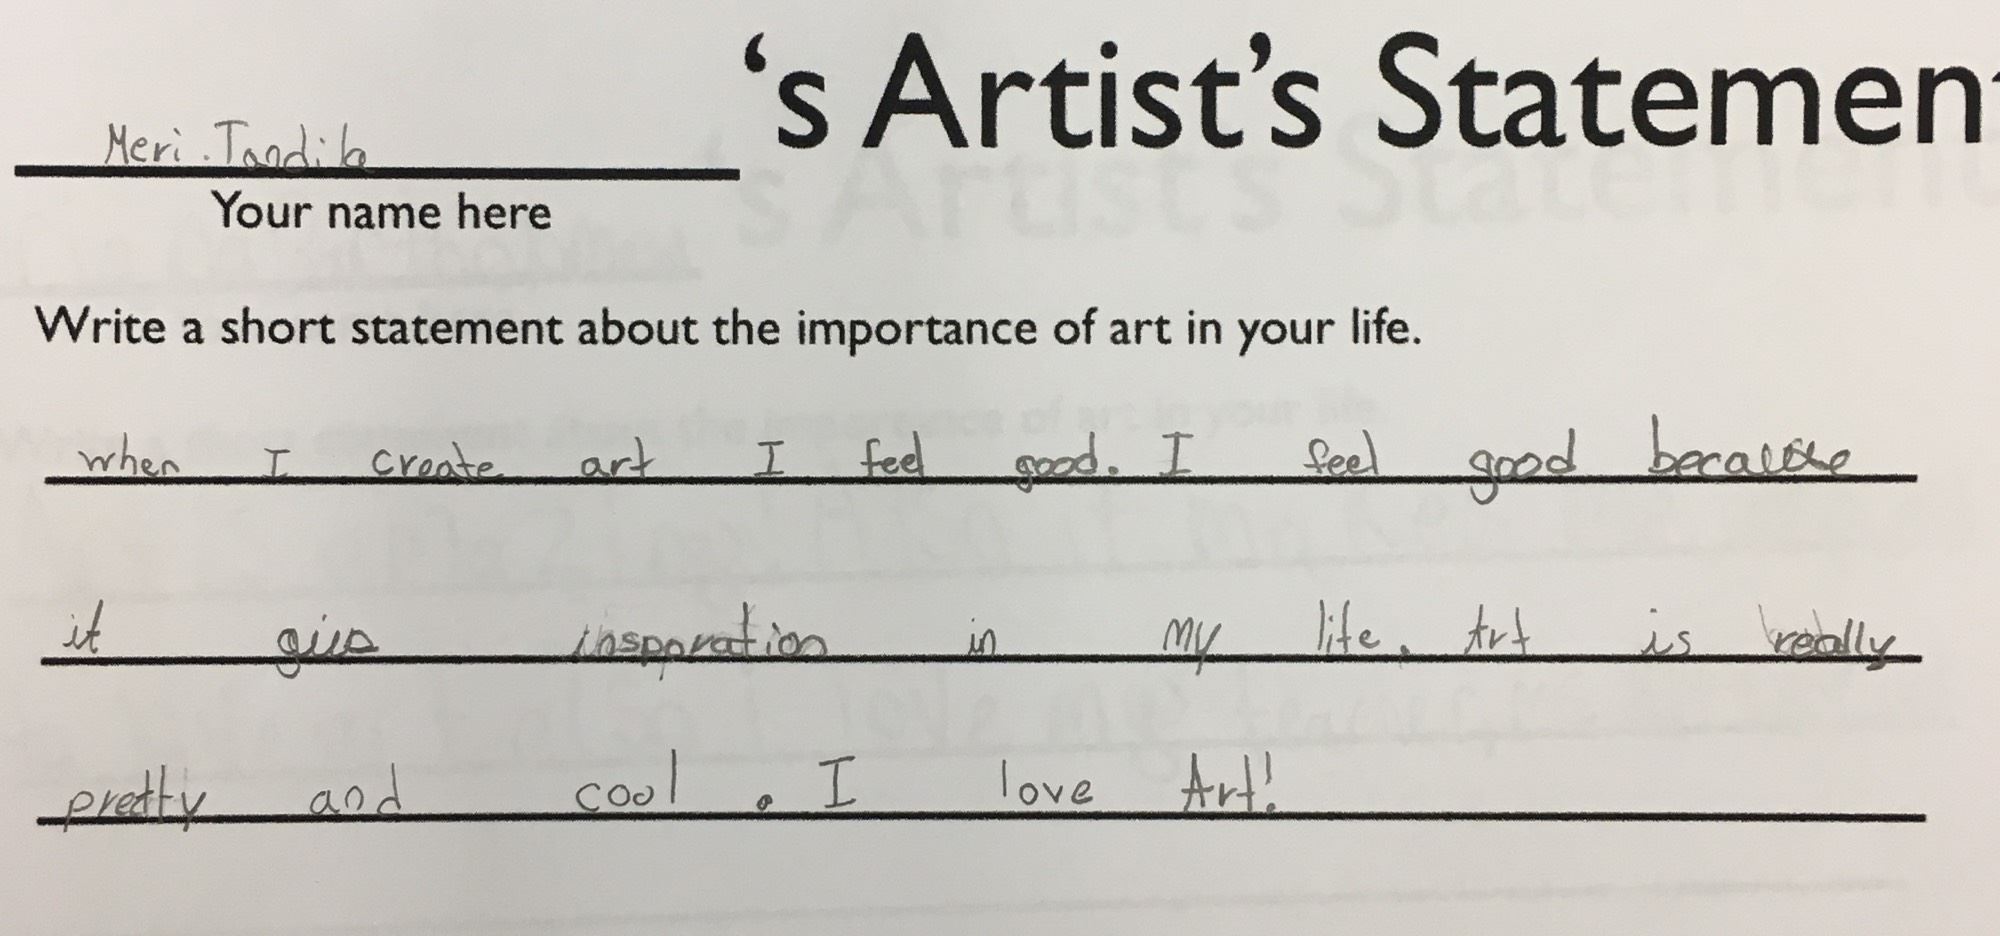 's Artist's Statement
Meri.Tandika
Your name here
Write a short statement about the importance of art in your life.
when I create art I feel good. I feel good because
it gius insporation in my life. Art is really
pretty and cool. I love Art!